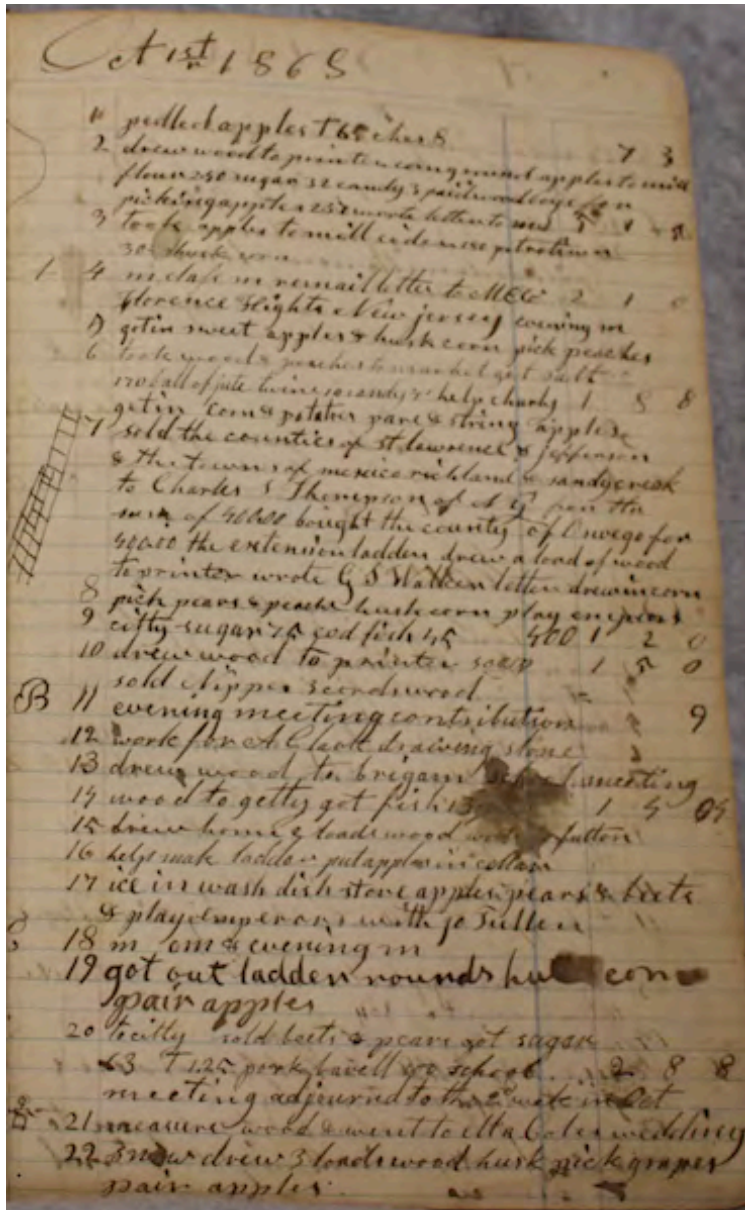 Oct 1st 1868
1 pedled apples & 8 7 3
2 drew wood to printer corn ground apples to mill
flour 250 sugar 32 candy 5 paid wood boys for
picking apples 250 wrote letter to
3 took apples to mill cider
30
1 4 m class m remail letter to MEG 2 1 0
florence hights New jersey evening m
5 got in sweet apples & husk corn pick peaches
6 took wood & peaches to market got salt
ball of jute twine candy help charly 1 8 8
get in corn & potatoes pare & string apples
7 sold the counties of st lawrence & jefferson
& the towns of mexico richland & sandycreek
to Charles S Thompson of N Y for the
sum of 40000 bought the county of Oswego for
40000 the extension ladder drew a load of wood
to printer wrote G S Walker letter drew in corn
8 pick pears & peaches husk corn play emperors
9 citty sugar 25 cod fish 45 400 1 2 0
10 drew wood to printer 5000 1 5 0
sold 3 cords wood
B 11 evening meeting contribution 9
12 work for A G drawing stone
13 drew wood to brigam school meeting
14 wood to getty got fish 13 1 4 04
15 drew home 2 loads wood fulton
16 help make ladder put apples in cellar
17 ice in wash dish store apples pears & beets
& play emperors with jo Tuller
18 m cm & evening m
19 got out ladder rounds corn
pair apples
20 to citty sold beets & pears got sugar
63 T 125 pork school 2 8 8
meeting adjourned to the 2 in Oct
21 measure wood & went to wedding
22 Snow drew 3 loads wood husk pick grapes
pair apples